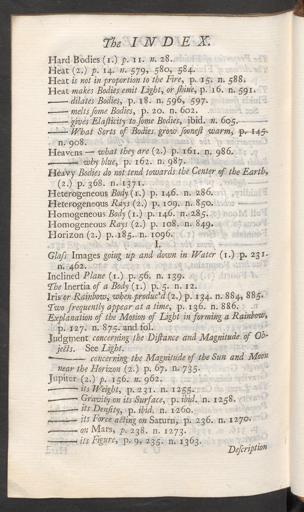 The INDEX.
Hard Bodies (1.) p. 11. n. 28.
Heat (2.) p. 14. n. 579, 580, 584.
Heat is not in proportion to the Fire, p. 15. n. 588.
Heat makes Bodies emit Light, or ſhine, p. 16. n. 591.
—— dilates Bodies, p. 18. n. 596, 597.
—— melts ſome Bodies, p. 20. n. 602.
—— gives Elaſticity to ſome Bodies, ibid. n. 605.
—— What Sorts of Bodies grow ſooneſt warm, p. 145.
n. 908.
Heavens — what they are (2.) p. 161. n. 986.
—— why blue, p. 162. n. 987.
Heavy Bodies do not tend towards the Center of the Earth,
(2.) p. 368. n. 1371.
Heterogeneous Body (1.) p. 146. n. 286.
Heterogeneous Rays (2.) p. 109. n. 850.
Homogeneous Body (1.) p. 146. n. 285.
Homogeneous Rays (2.) p. 108. n. 849.
Horizon (2.) p. 185. n. 1096.
I.
Glaſs Images going up and down in Water (1.) p. 231.
n. 462.
Inclined Plane (1.) p. 56. n. 139.
The Inertia of a Body (1.) p. 5. n. 12.
Iris or Rainbow, when produc'd (2.) p. 134. n. 884, 885.
Two frequently appear at a time, p. 136. n. 886.
Explanation of the Motion of Light in forming a Rainbow,
p. 127. n. 875. and fol.
Judgment concerning the Diſtance and Magnitude of Ob-
jects. See Light.
—— concerning the Magnitude of the Sun and Moon
near the Horizon (2.) p. 67. n. 735.
Jupiter (2.) p. 156. n. 962.
—— its Weight, p. 231. n. 1255.
—— Gravity on its Surface, p. ibid. n. 1258.
—— its Denſity, p. ibid. n. 1260.
—— its Force acting on Saturn, p. 236. n. 1270.
—— on Mars, p. 238. n. 1273.
—— its Figure, p. 9, 235. n. 1363.
Deſcription